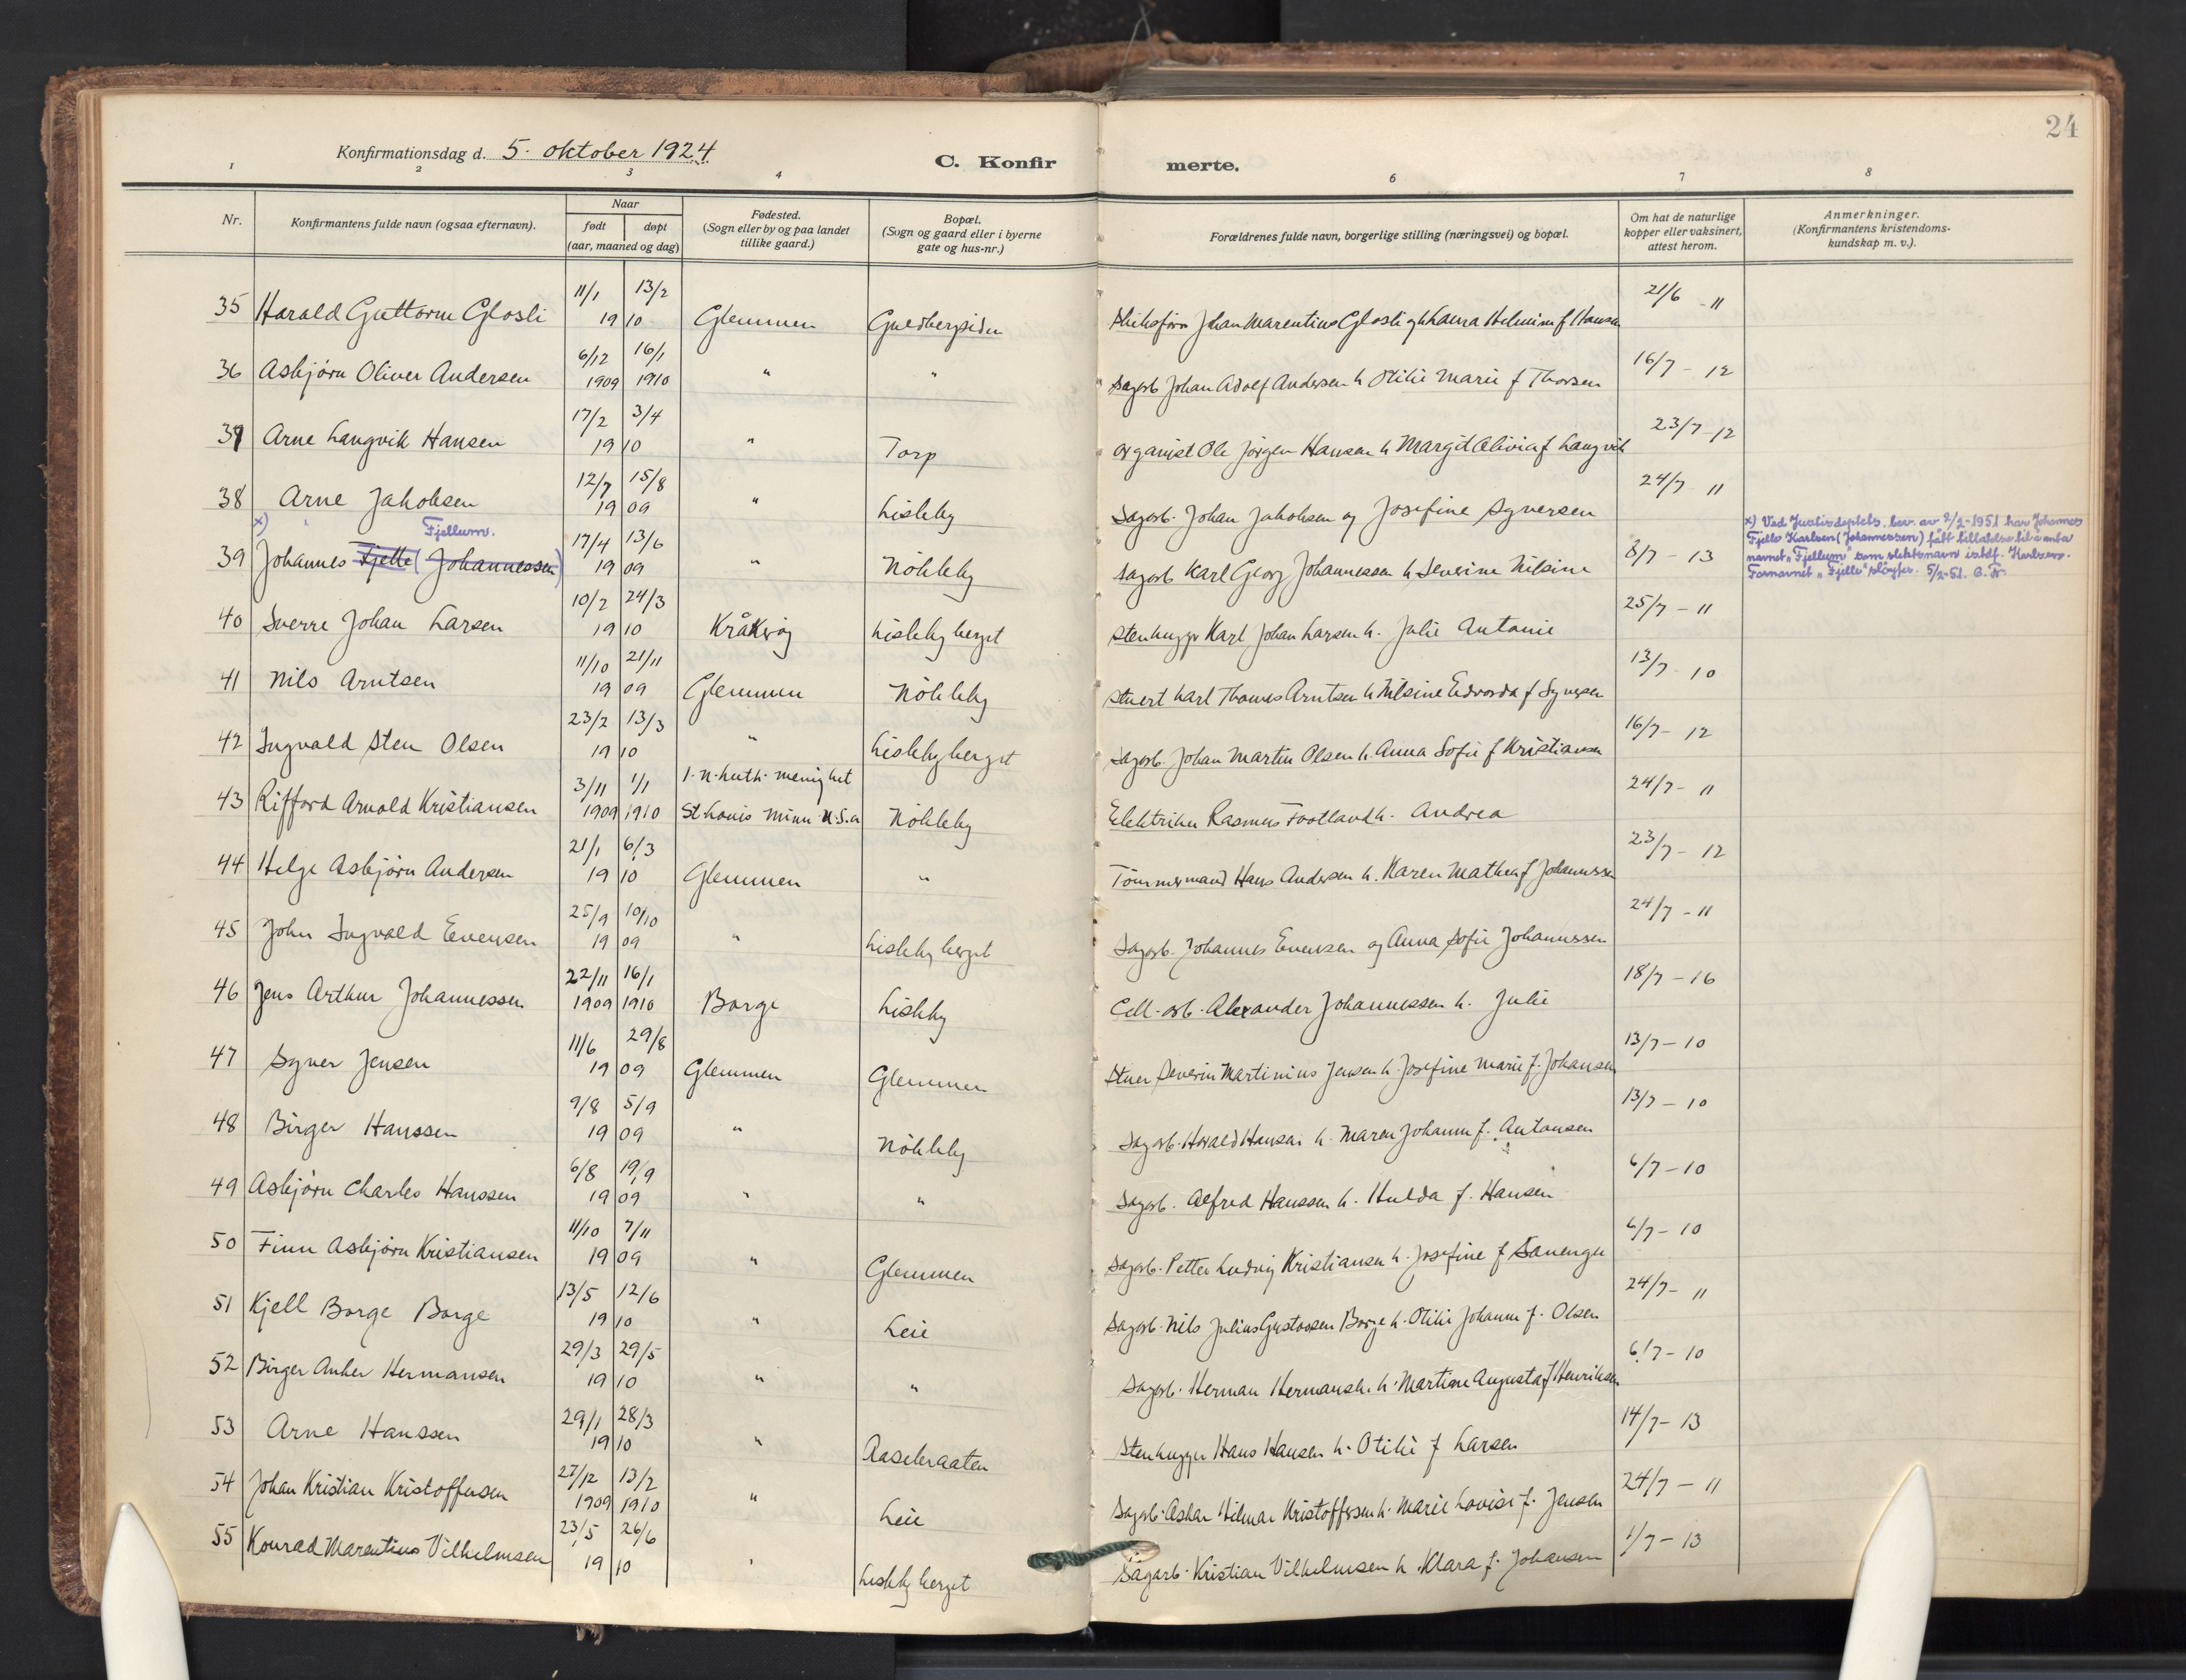 24
Konfirmationsdag d. 5. oktober 1924
C. Konfir merte.
1 2 3 4 6 7 8
Nr. Konfirmantens fulde navn (ogsaa efternavn). Naar født døpt (aar, maaned og dag) Fødested. (Sogn eller by og paa landet tillike gaard.) Bopæl. (Sogn og gaard eller i byerne gate og hus-nr.) Forældrenes fulde navn, borgerlige stilling (næringsvei) og bopæl. Om hat de naturlige kopper eller vaksinert, attest herom. Anmerkninger. (Konfirmantens kristendoms-kundskap m. v.).
35 Harald Guttorm Glosli 11/1 13/2 1910 Glemmen Guldbergsiden Johan Marentius Glosli og Laura Helmine f Hansen 21/6 - 11
36 Asbjørn Oliver Andersen 6/12 1909 16/1 1910 " " Sagarb Johan Adolf Andersen h Otilie Marie f Thorsen 16/7 - 12
37 Arne Langvik Hansen 17/2 3/4 1910 " Torp organist Ole Jørgen Hansen h Margit Olivia f Langvik 23/7 - 12
38 Arne Jakobsen 12/7 15/8 1909 " Lisleby Sagarb. Johan Jakobsen og Josefine Syversen 24/7 11
39 x) Johannes Fjelle (Johannessen) Fjellum. 17/4 13/6 1909 " Nökleby Sagarb Karl Georg Johannessen h Severine Nilsine 8/7 - 13
x) Ved Justisdeptets. bev. av 2/2-1951 har Johannes
Fjelle Karlsen (Johannessen) fått tillatelse til å anta
navnet "Fjellum" som slektsnavn istdf. Karlsen.
Fornavnet "Fjelle" sløyfes. 5/2-51.
40 Sverre Johan Larsen 10/2 24/3 1910 Kråkerøy Lislebyberget Stenhugger Karl Johan Larsen h. Julie Antonie 25/7 - 11
41 Nils Arntsen 11/10 21/11 1909 Glemmen Nökleby Stuert Karl Thomas Arntsen h Nilsine Edvarda f Syversen 13/7 10
42 Ingvald Sten Olsen 23/2 13/3 1910 " Lislebyberget Sagarb. Johan Martin Olsen h. Anna Sofie f Kristiansen 16/7 - 12
43 Rifford Arnold Kristiansen 3/11 1909 1/1 1910 1. n. luth. menighet St Louis Minn U.S.a Nökleby Elektriker Rasmus Footland h. Andrea 24/7 - 11
44 Helge Asbjørn Andersen 21/1 6/3 1910 Glemmen " Tömmermand Hans Andersen h. Karen Mathea f Johannessen 23/7 - 12
45 John Ingvald Evensen 25/9 10/10 1909 " Lislebyberget Sagarb. Johannes Evensen og Anna Sofie Johannessen 24/7 - 11
46 Jens Arthur Johannessen 22/11 1909 16/1 1910 Borge Lisleby Cell. arb. Alexander Johannessen h. Julie 18/7 - 16
47 Syver Jensen 11/6 29/8 1909 Glemmen Glemmen Stuer Severin Martinius Jensen h. Josefine Marie f. Johansen 13/7 - 10
48 Birger Hanssen 9/8 5/9 1909 " Nökleby Sagarb. Harald Hansen h. Maren Johanne f. Antonsen 13/7 - 10
49 Asbjørn Charles Hanssen 6/8 19/9 1909 " " Sagarb. Alfred Hanssen h. Hulda f. Hansen 6/7 - 10
50 Finn Asbjørn Kristiansen 11/10 7/11 1909 " Glemmen Sagarb. Petter Ludvig Kristiansen h. Josefine f 6/7 - 10
51 Kjell Borge Borge 13/5 12/6 1910 " Leie Sagarb. Nils Julius Gustavsen Borge h. Otilie Johanne f. Olsen 24/7 - 11
52 Birger Anker Hermansen 29/3 29/5 1910 " " Sagarb. Herman Hermansen h. Martine Augusta f Henriksen 6/7 - 10
53 Arne Hanssen 29/1 28/3 1910 " Aaseleraaten Stenhugger Hans Hansen h. Otilie f Larsen 14/7 - 13
54 Johan Kristian Kristoffersen 27/12 1909 13/2 1910 " Leie Sagarb. Oskar Hilmar Kristoffersen h. Marie Lovise f. Jensen 24/7 - 11
55 Konrad Marentius Vilhelmsen 23/5 26/6 1910 " Lislebyberget Sagarb. Kristian Vilhelmsen h. Klara f. Johansen 1/7 - 13